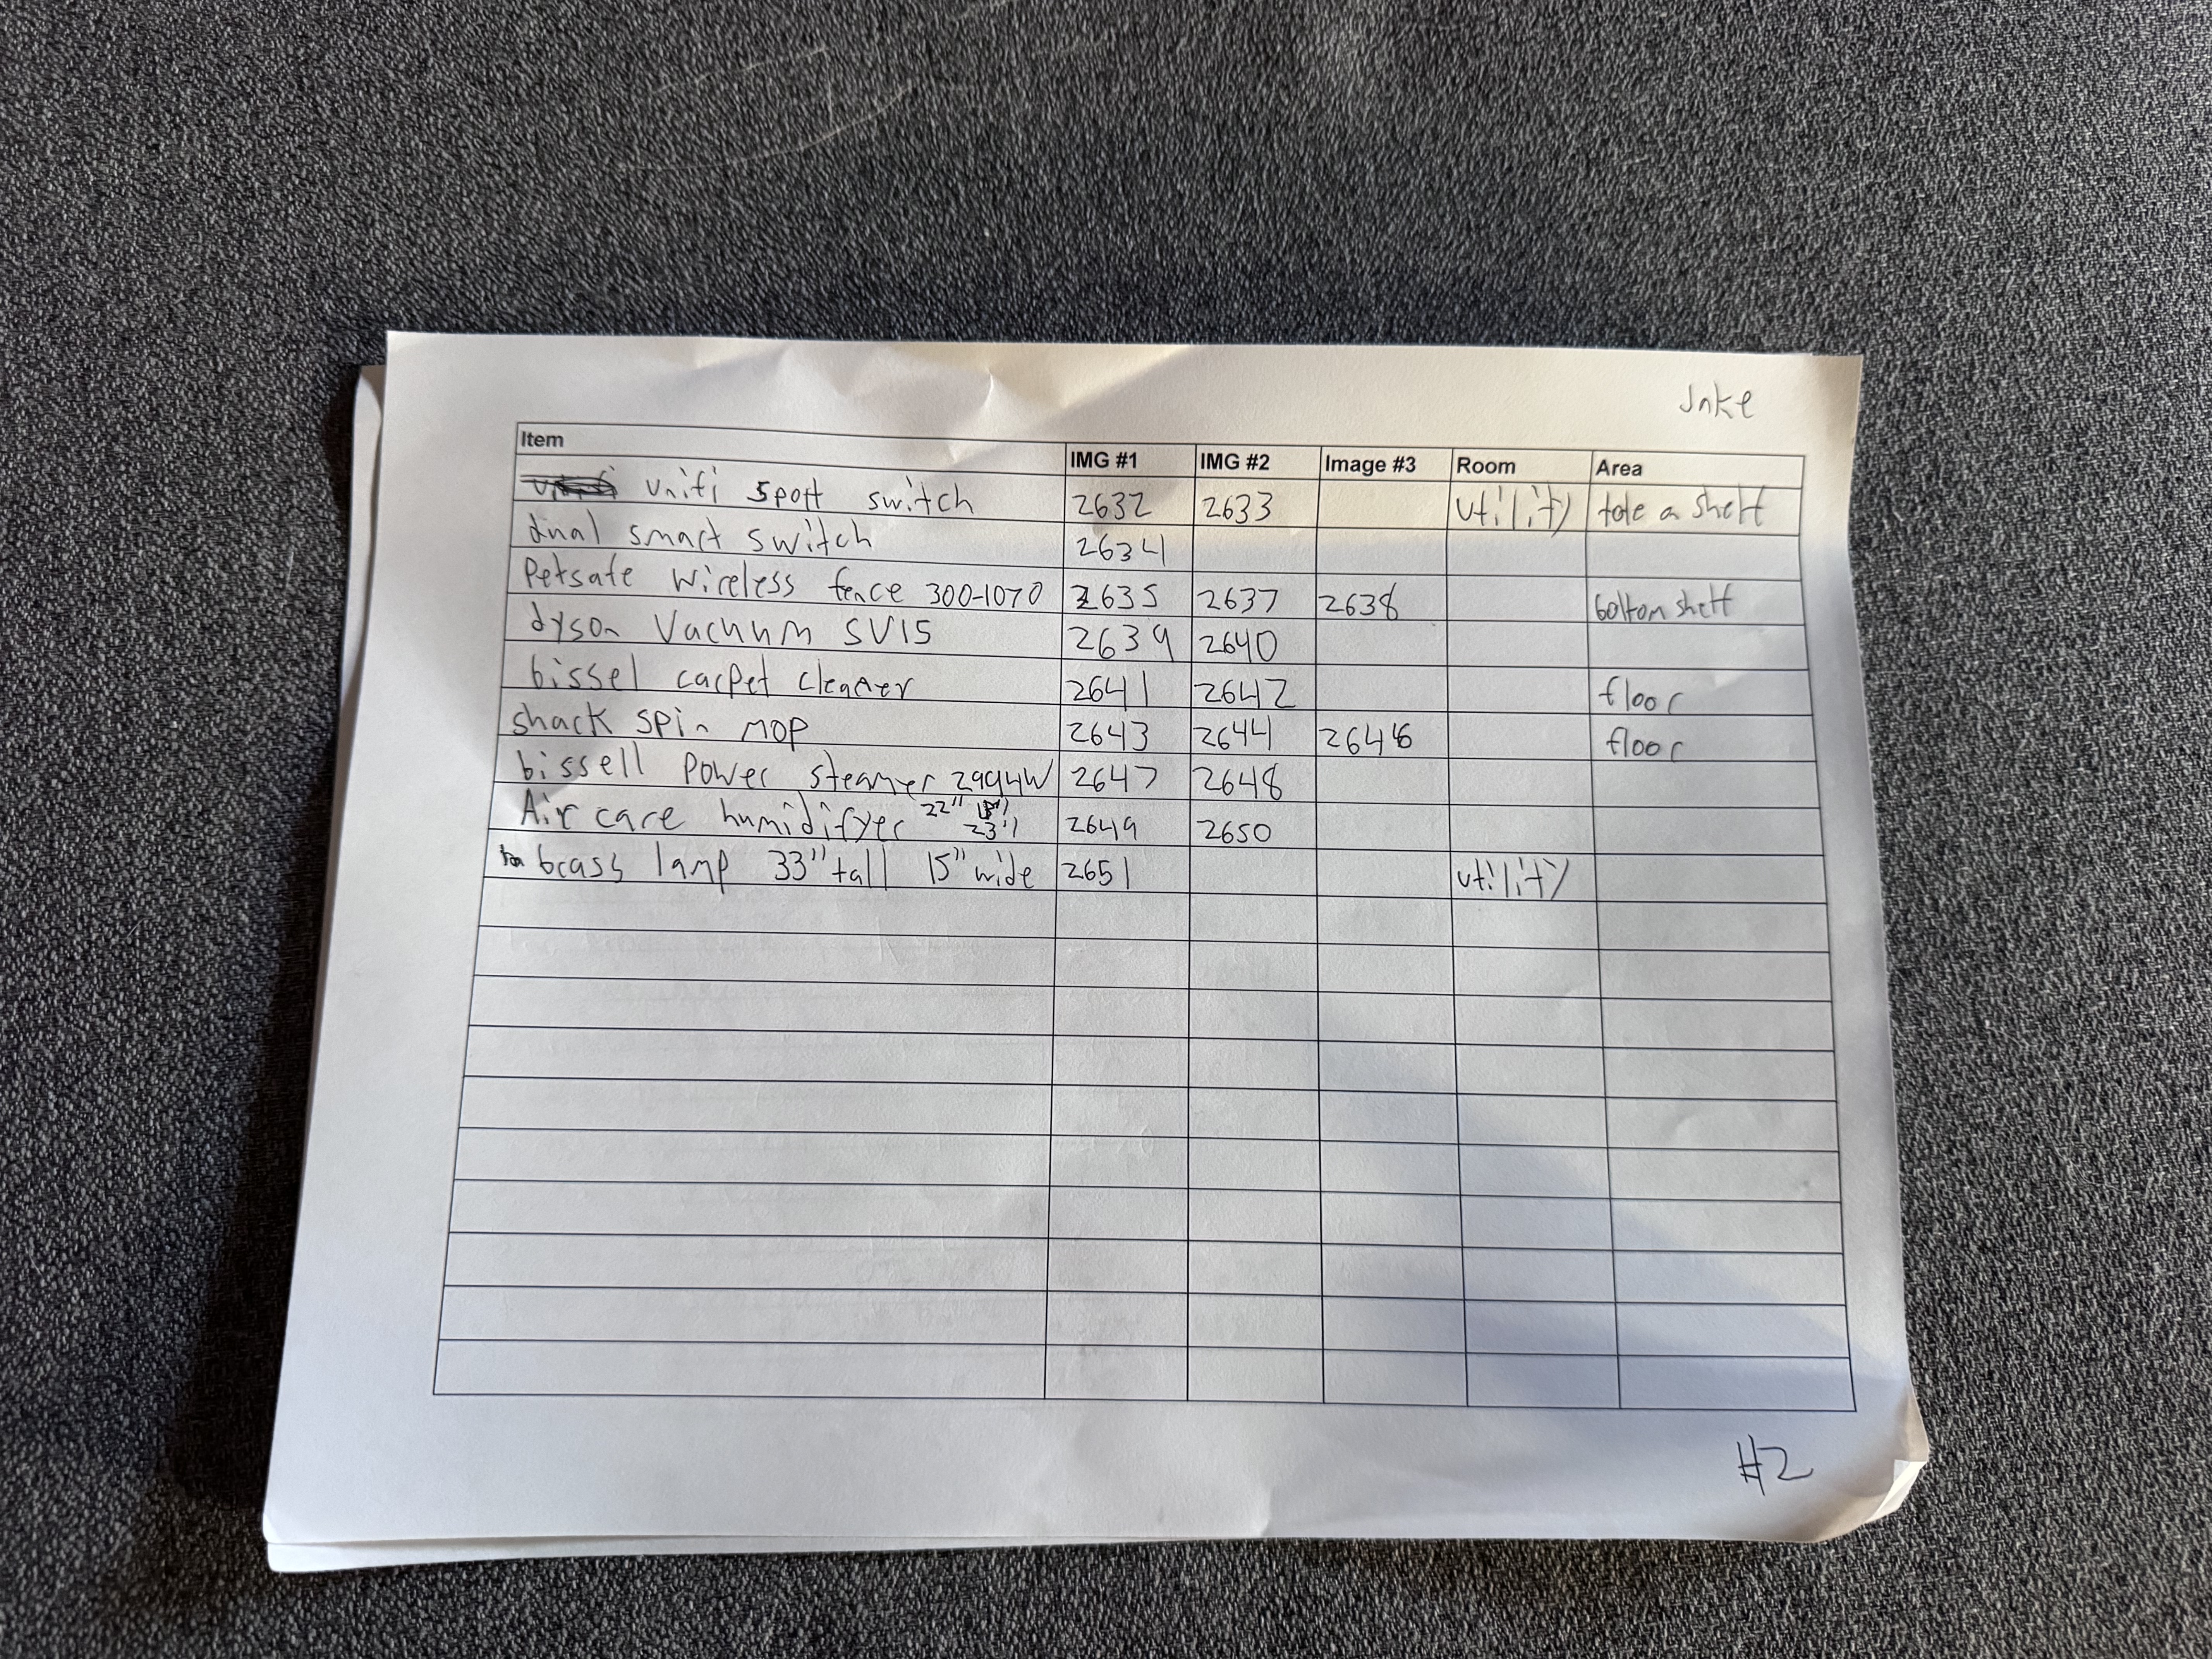 Jake
Item IMG #1 IMG #2 Image #3 Room Area
unifi 5port switch 2632 2633 utility tote a shelf
dual smart switch 2634
Petsafe wireless fence 300-1070 2635 2637 2638 bottom shelf
dyson Vacuum SV15 2639 2640
bissel carpet cleaner 2641 2642 floor
shark spin mop 2643 2644 2646 floor
bissell power steamer 2994W 2647 2648
Air care humidifyer 22" 23" 2649 2650
brass lamp 33" tall 15" wide 2651 utility
#2